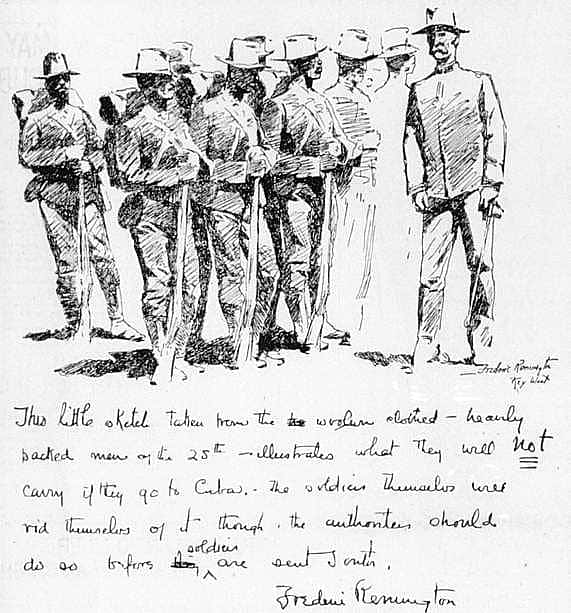 Frederic Remington
Key West
This little sketch taken from the woolen clothed – heavily
packed men of the 25th – illustrates what they will not
carry if they go to Cuba. – The soldiers themselves will
rid themselves of it though, the authorities should
do so before soldiers are sent South.
Frederic Remington